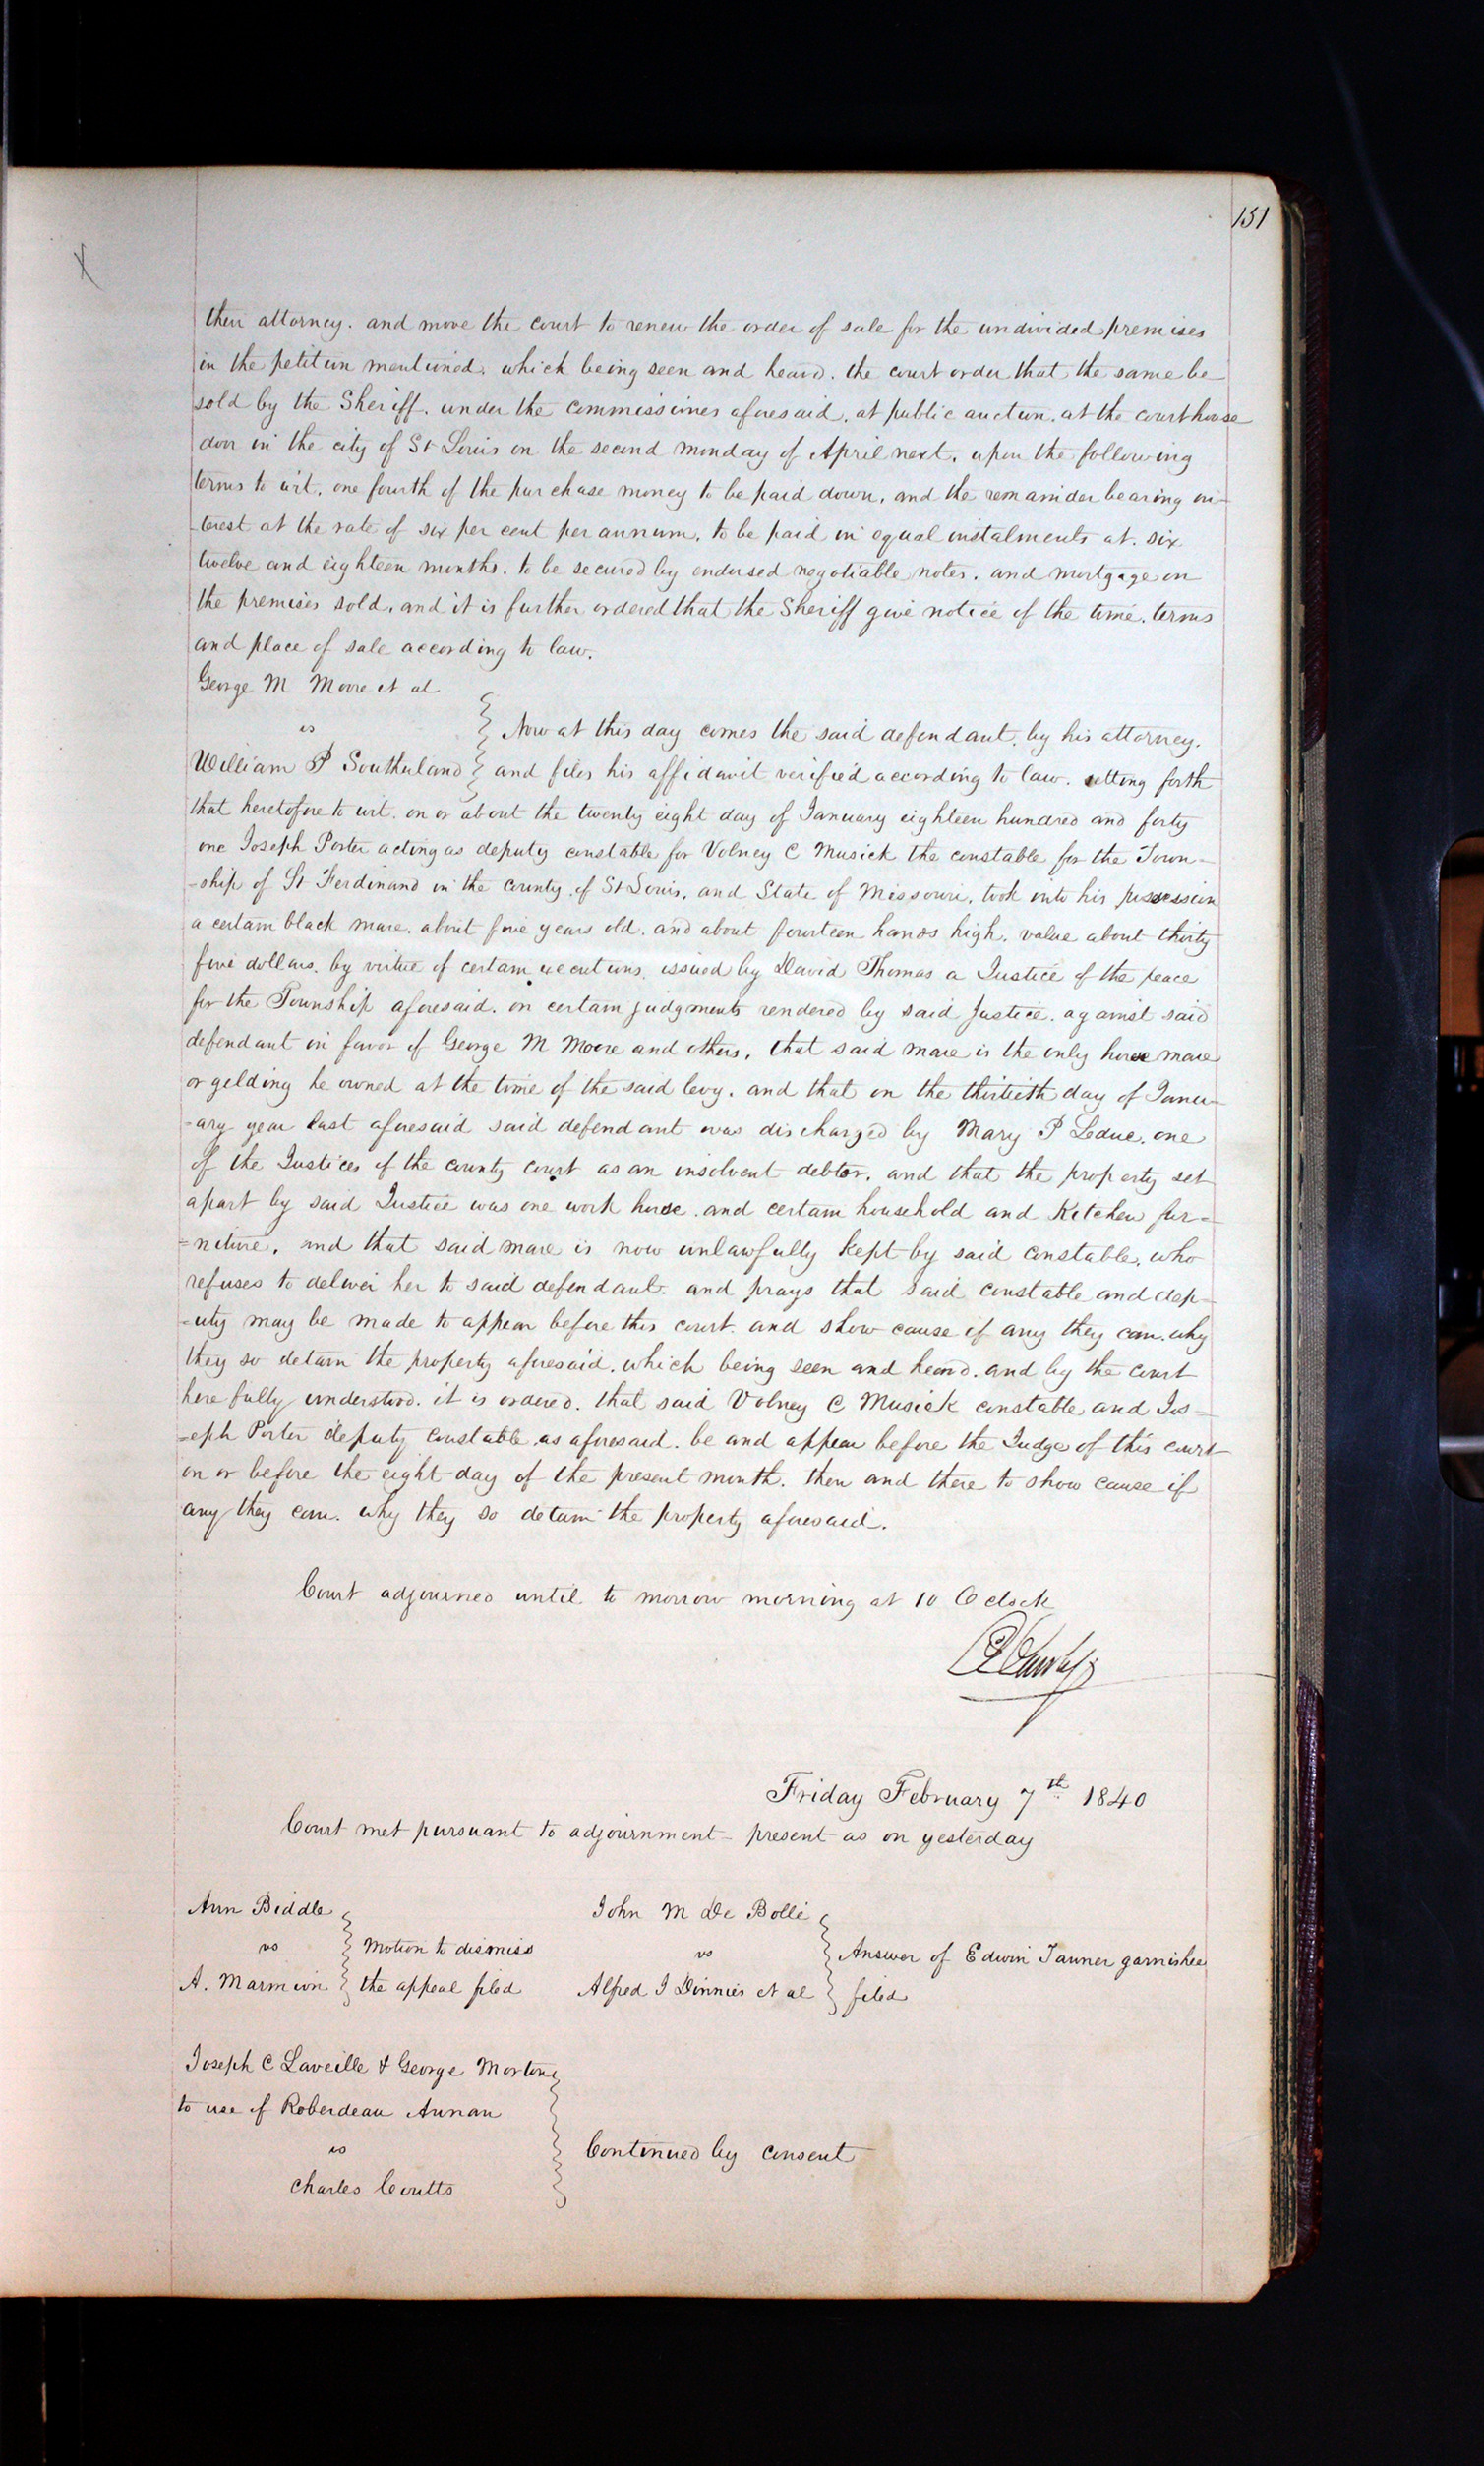 151
X
their attorney. and move the court to renew the order of sale for the undivided premises
in the petition mentioned. which being seen and heard. the court order that the same be
sold by the Sheriff. under the commissioners aforesaid. at public auction. at the court house
door in the city of St Louis on the second monday of April next. upon the following
terms to wit. one fourth of the purchase money to be paid down, and the remainder bearing in-
-terest at the rate of six per cent per annum. to be paid in equal instalments at. six
twelve and eighteen months. to be secured by endorsed negotiable notes. and mortgage on
the premises sold. and it is further ordered that the Sheriff give notice of the time. terms
and place of sale according to law.
George M Moore et al
vs
Now at this day comes the said defendant. by his attorney.
William P Southerland and files his affidavit verified according to law. setting forth
that heretofore to wit. on or about the twenty eight day of January eighteen hundred and forty
one Joseph Porter acting as deputy constable for Volney C Musick the constable for the Town-
-ship of St Ferdinand in the county of St Louis, and State of Missouri, took into his possession
a certain black mare. about five years old. and about fourteen hands high. value about thirty
five dollars. by virtue of certain executions. issued by David Thomas a Justice of the peace
for the Township aforesaid. on certain judgments rendered by said Justice. against said
defendant in favor of George M Moore and others, that said mare is the only horse mare
or gelding he owned at the time of the said levy. and that on the thirtieth day of Janu-
-ary year last aforesaid said defendant was discharged by Mary P Leduc. one
of the Justices of the county court as an insolvent debtor. and that the property set
apart by said Justice was one work horse. and certain household and Kitchen fur-
-niture, and that said mare is now unlawfully kept by said constable, who
refuses to deliver her to said defendant. and prays that said constable and dep-
-uty may be made to appear before this court. and show cause if any they can. why
they so detain the property aforesaid. which being seen and heard. and by the court
here fully understood. it is ordered. that said Volney C Musick constable and Jos-
-eph Porter deputy constable as aforesaid. be and appear before the Judge of this court
on or before the eight day of the present month. then and there to show cause if
any they can. why they so detain the property aforesaid.
Court adjourned until to morrow morning at 10 Oclock
Friday February 7th 1840
Court met pursuant to adjournment - present as on yesterday
Ann Biddle
vs
Motion to dismiss
A. Marmion
the appeal filed
John M De Bolle
vs
Answer of Edwin Tanner garnishee
Alfred J Dinnies et al
filed
Joseph C Laveille & George Morton
to use of Roberdeau Annan
vs
Continued by consent
Charles Coutts